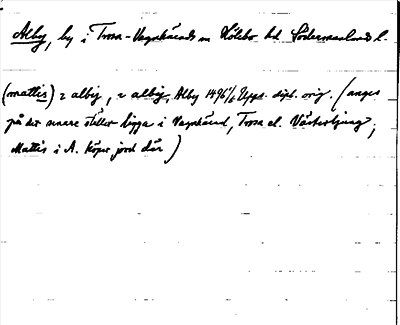 Alby, by i Trosa-Vagnhärads sn Hölebo hd Södermanlands l.
(mattis) i albij, i albij, Alby 1496 1/6 Upps. dipl. orig. (anges
på det senare stället ligga i Vagnhärad, Trosa el. Västerljung;
Mattis i A. köper jord där)